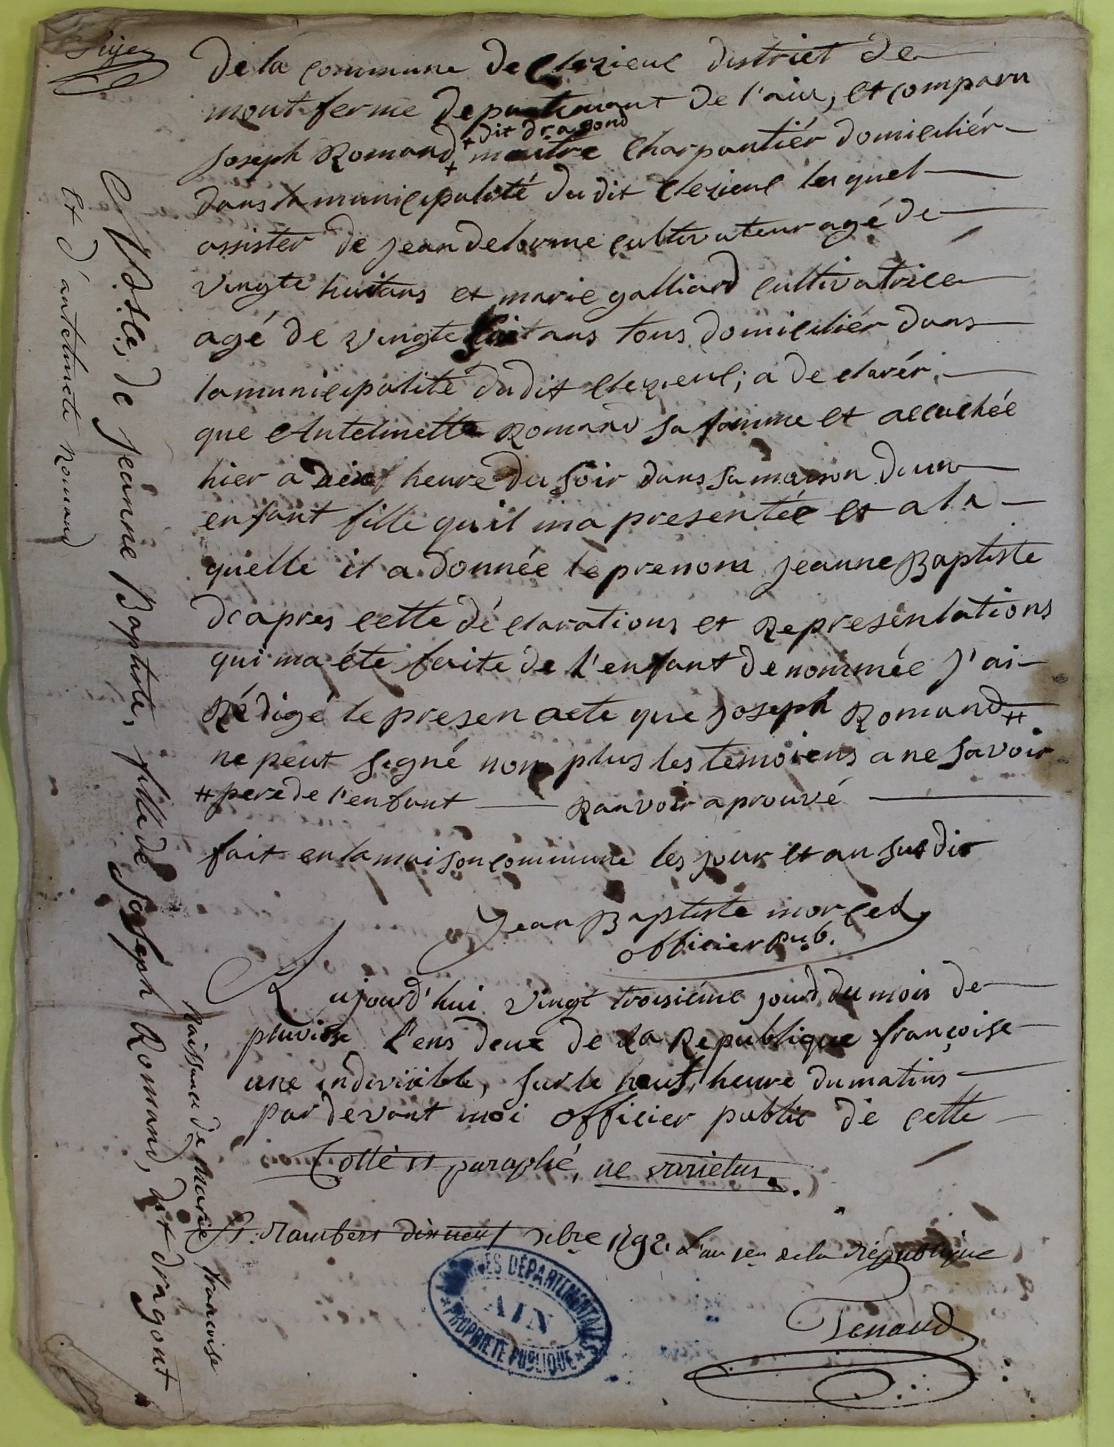 de la commune de Clezieul district de
montferme departemant de l'ain, et comparu
+ dit dragond
joseph Romand + maitre charpantiér domiciliér
dans la municipalité du dit clezieul lesquel
assister de jean delorme cultivateur agé de
vingte huitans et marie galliard cultivatrice
agé de vingte huit ans tous domiciliér dans
la municipalité dudit clezieul; a declarér
que Antelmette Romand sa famme et accuchée
hier a dix heure du soir dans sa maison d'une
enfant fille qu'il ma presentée et a la
quelle il a donnée le prenom jeanne Baptiste
deapres cette déclarations et Representations
qui ma éte faite de l'enfant denommée j'ai
Rédigé le presen acte que joseph Romand ++
ne peut segné non plus les temoiens a ne savoir
++ pere de l'enfant Ranvoir aprouvé
fait en la maison commune les jour et an susdit
Jean Baptiste morcel
officier pub.
Aujourd'hui vingt troisiéme jour du mois de
pluviose l'ens deux de la Republique françoise
une indivisible, sur le huit heure du matins
par devant moi officier public de cette
Cotté et paraphé, ne varietur.
St. Rambert dix neuf xbre 1792. L'an 1er de la République
Tenaud
ARCHIVES DÉPARTEMENTALES
AIN
PROPRIÉTÉ PUBLIQUE
de jeanne Baptiste, fille de Joseph Romand, dit dragont
et d'antelmete Romand
naissance de Marie françoise